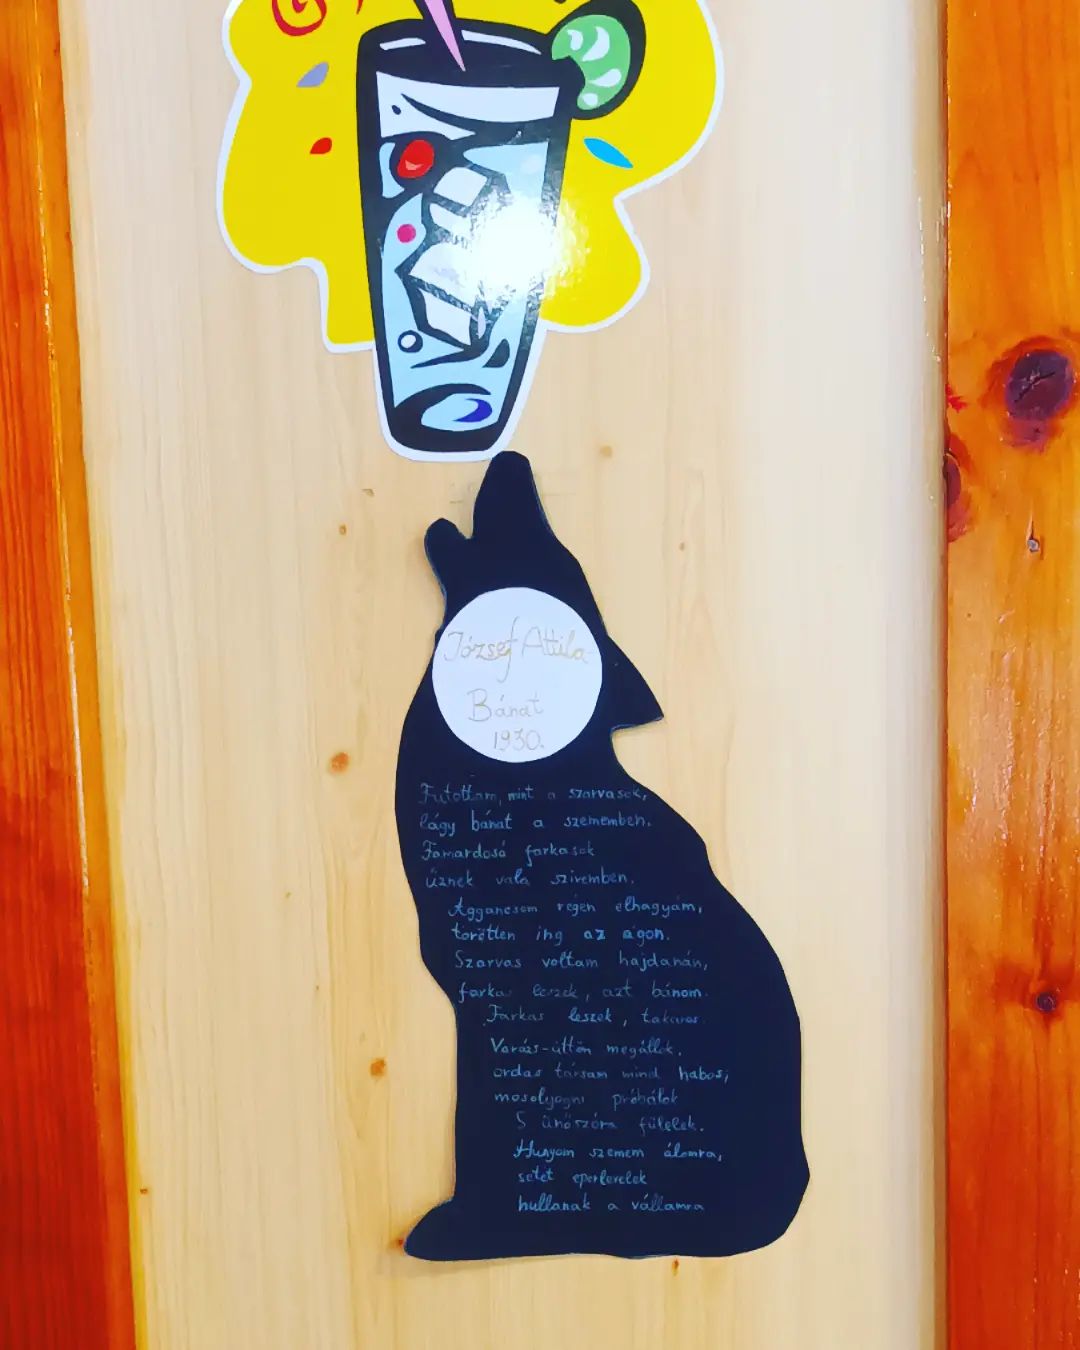 József Attila
Bánat
1930.
Futottam, mint a szarvasok,
lágy bánat a szememben.
Famardosó farkasok
űznek vala szivemben.
Agancsom régen elhagyám,
törötten ing az ágon.
Szarvas voltam hajdanán,
farkas leszek, azt bánom.
Farkas leszek, takaros.
Varázs-ütőn megállok,
ordas társam mind habos;
mosolyogni próbálok
S ünőszóra fülelek.
Hunyom szemem álomra,
setét eperlevelek
hullanak a vállamra